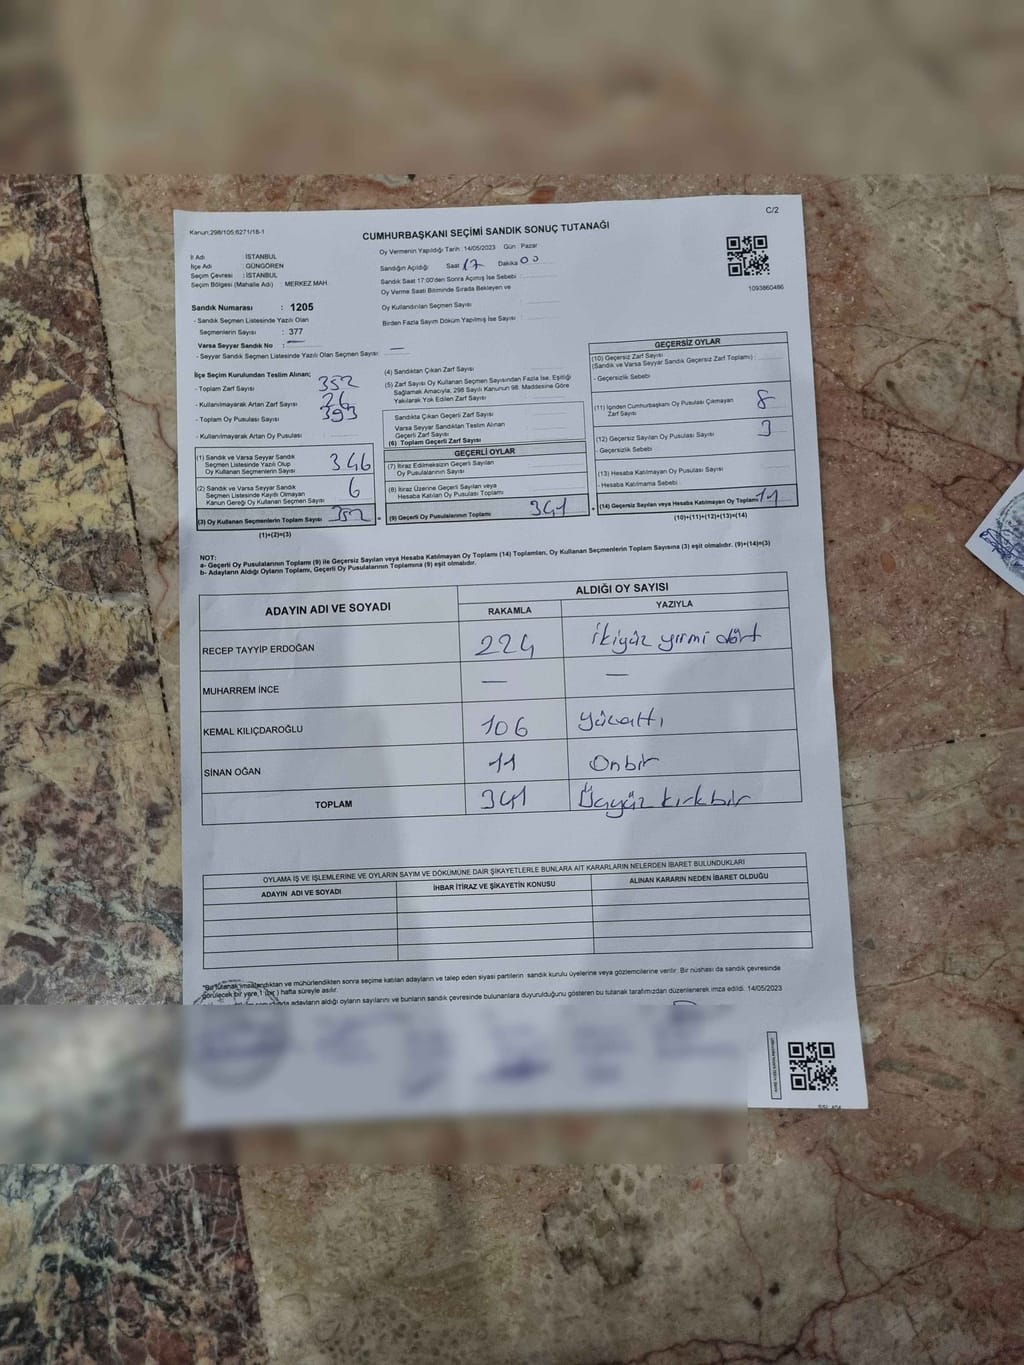 C/2
Kanun;298/105;6271/18-1
CUMHURBAŞKANI SEÇİMİ SANDIK SONUÇ TUTANAĞI
Oy Vermenin Yapıldığı Tarih : 14/05/2023 Gün : Pazar
İl Adı : İSTANBUL
İlçe Adı : GÜNGÖREN
Seçim Çevresi : İSTANBUL
Seçim Bölgesi (Mahalle Adı) : MERKEZ MAH.
Sandığın Açıldığı Saat 17 Dakika 00
Sandık Saat 17:00'den Sonra Açılmış İse Sebebi :
Oy Verme Saati Bitiminde Sırada Bekleyen ve
Oy Kullandırılan Seçmen Sayısı :
Birden Fazla Sayım Döküm Yapılmış İse Sayısı :
1093860486
Sandık Numarası : 1205
- Sandık Seçmen Listesinde Yazılı Olan
Seçmenlerin Sayısı : 377
Varsa Seyyar Sandık No : —
- Seyyar Sandık Seçmen Listesinde Yazılı Olan Seçmen Sayısı : —
İlçe Seçim Kurulundan Teslim Alınan;
- Toplam Zarf Sayısı 352
- Kullanılmayarak Artan Zarf Sayısı 26
- Toplam Oy Pusulası Sayısı 393
- Kullanılmayarak Artan Oy Pusulası :
(1) Sandık ve Varsa Seyyar Sandık
Seçmen Listesinde Yazılı Olup
Oy Kullanan Seçmenlerin Sayısı 346
(2) Sandık ve Varsa Seyyar Sandık
Seçmen Listesinde Kayıtlı Olmayan
Kanun Gereği Oy Kullanan Seçmen Sayısı 6
(3) Oy Kullanan Seçmenlerin Toplam Sayısı 352
(1)+(2)=(3)
(4) Sandıktan Çıkan Zarf Sayısı
(5) Zarf Sayısı Oy Kullanan Seçmen Sayısından Fazla İse, Eşitliği
Sağlamak Amacıyla, 298 Sayılı Kanunun 98. Maddesine Göre
Yakılarak Yok Edilen Zarf Sayısı :
Sandıkta Çıkan Geçerli Zarf Sayısı
Varsa Seyyar Sandıktan Teslim Alınan
Geçerli Zarf Sayısı
(6) Toplam Geçerli Zarf Sayısı
GEÇERLİ OYLAR
(7) İtiraz Edilmeksizin Geçerli Sayılan
Oy Pusulalarının Sayısı
(8) İtiraz Üzerine Geçerli Sayılan veya
Hesaba Katılan Oy Pusulası Toplamı
= (9) Geçerli Oy Pusulalarının Toplamı 341
GEÇERSİZ OYLAR
(10) Geçersiz Zarf Sayısı
(Sandık ve Varsa Seyyar Sandık Geçersiz Zarf Toplamı) :
- Geçersizlik Sebebi
(11) İçinden Cumhurbaşkanı Oy Pusulası Çıkmayan
Zarf Sayısı 8
(12) Geçersiz Sayılan Oy Pusulası Sayısı 3
- Geçersizlik Sebebi
(13) Hesaba Katılmayan Oy Pusulası Sayısı
- Hesaba Katılmama Sebebi
+ (14) Geçersiz Sayılan veya Hesaba Katılmayan Oy Toplamı 11
(10)+(11)+(12)+(13)=(14)
NOT:
a- Geçerli Oy Pusulalarının Toplamı (9) ile Geçersiz Sayılan veya Hesaba Katılmayan Oy Toplamı (14) Toplamları, Oy Kullanan Seçmenlerin Toplam Sayısına (3) eşit olmalıdır. (9)+(14)=(3)
b- Adayların Aldığı Oyların Toplamı, Geçerli Oy Pusulalarının Toplamına (9) eşit olmalıdır.
ADAYIN ADI VE SOYADI ALDIĞI OY SAYISI
RAKAMLA YAZIYLA
RECEP TAYYİP ERDOĞAN 224 İkiyüz yirmi dört
MUHARREM İNCE — —
KEMAL KILIÇDAROĞLU 106 yüzaltı
SİNAN OĞAN 11 Onbir
TOPLAM 341 Üçyüz kırkbir
OYLAMA İŞ VE İŞLEMLERİNE VE OYLARIN SAYIM VE DÖKÜMÜNE DAİR ŞİKAYETLERLE BUNLARA AİT KARARLARIN NELERDEN İBARET BULUNDUKLARI
ADAYIN ADI VE SOYADI İHBAR İTİRAZ VE ŞİKAYETİN KONUSU ALINAN KARARIN NEDEN İBARET OLDUĞU
"Bu tutanak imzalandıktan ve mühürlendikten sonra seçime katılan adayların ve talep eden siyasi partilerin sandık kurulu üyelerine veya gözlemcilerine verilir. Bir nüshası da sandık çevresinde
görülecek bir yere 1 (bir) hafta süreyle asılır.
adayların aldığı oyların sayılarını ve bunların sandık çevresinde bulunanlara duyurulduğunu gösteren bu tutanak tarafımızdan düzenlenerek imza edildi. 14/05/2023